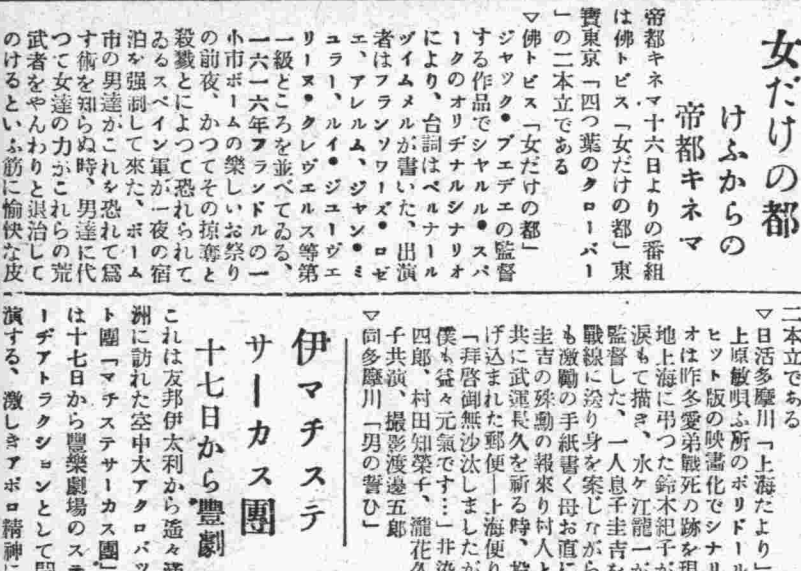 女だけの都
けふからの
帝都キネマ
帝都キネマ十六日よりの番組
は佛トビス「女だけの都」東
寶東京「四つ葉のクローバー
」の二本立である
▽佛トビス「女だけの都」
ジャック・フェデエの監督
する作品でシャルル・スパ
ークのオリヂナルシナリオ
により、台詞はベルナール
ヅイムメルが書いた、出演
者はフランソワーズ・ロゼ
エ、アレルム、ジャン・ミ
ュラー、ルイ・ジユーヴエ
リーヌ・クレヴエルス等第
一級どころを並べてゐる、
一六一六年フランドルの一
小市ボームの樂しいお祭り
の前夜、かつてその掠奪と
殺戮とによつて恐れられて
ゐるスペイン軍が一夜の宿
泊を强制して來た、ボーム
市の男達がこれを恐れて爲
す術を知らぬ時、男達に代
つて女達の力がこれらの荒
武者をやんわりと退治して
のけるといふ筋に愉快な皮
二本立である
▽日活多摩川「上海だより」
上原敏唄ふ所のポリドール
ヒット版の映畫化でシナリ
オは昨冬愛弟戰死の跡を現
地上海に弔つた鈴木紀子が
涙もて描き、水ケ江龍一が
監督した、一人息子圭吉を
戰線に送り身を案じながら
も激勵の手紙書く母お直に
圭吉の殊勳の報來り村人と
共に武運長久を祈る時、投
げ込まれた郵便―上海便り
「拜啓御無沙汰しましたが
僕も益々元氣です…」井染
四郎、村田知榮子、瀧花久
子共演、撮影渡邊五郎
▽同多摩川「男の誓ひ」
伊マチステ
サーカス團
十七日から豐劇
これは友邦伊太利から遙々滿
洲に訪れた空中大アクロバッ
ト團「マチステサーカス團」
は十七日から豐樂劇場のステ
ーヂアトラクションとして開
演する、激しきアポロ精神に